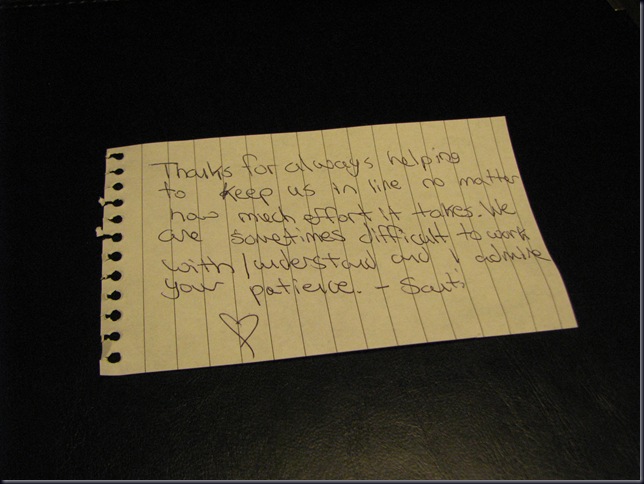 Thanks for always helping
to keep us in line no matter
how much effort it takes. We
are sometimes difficult to work
with/understand and I admire
your patience. - Santi